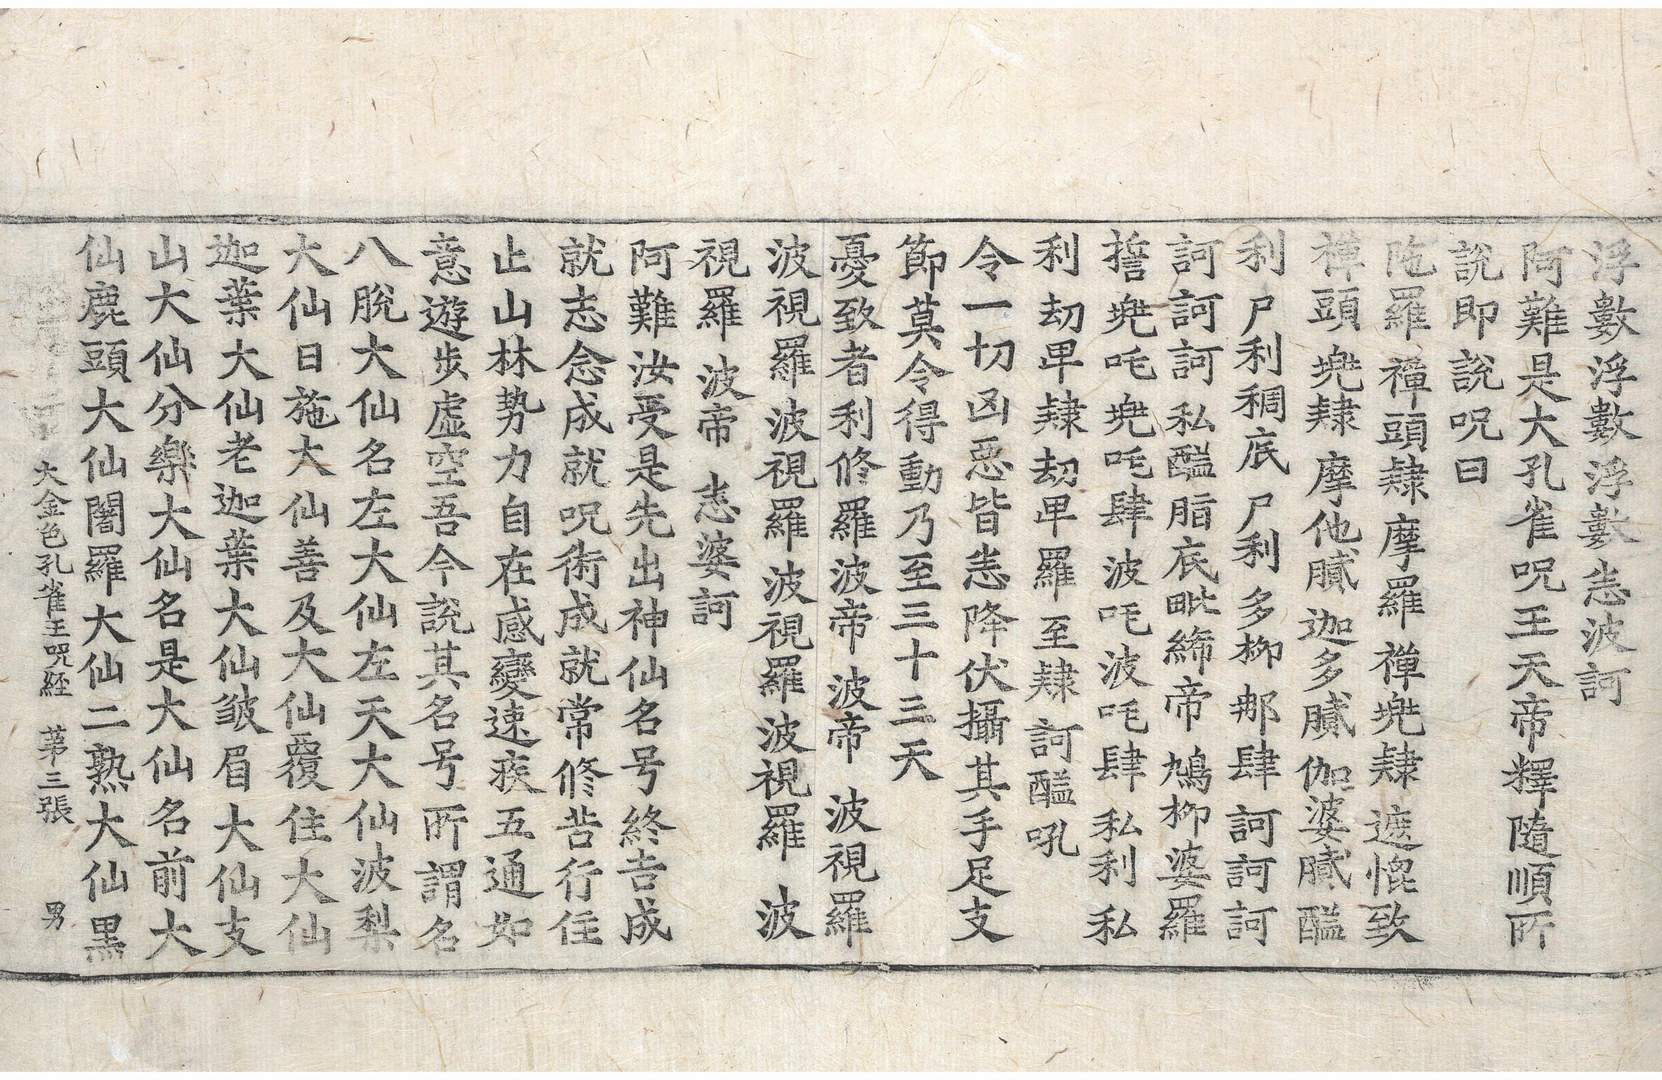 浮數浮數浮數恚波訶
阿難是大孔雀呪王天帝釋隨順所
說即說呪曰
陁羅 禪頭隸摩羅 禪兠隸 遮惃致
禪頭 兠隸 摩他膩 迦多膩 伽婆膩 醯
利 尸利稠底 尸利多柳 郍肆 訶訶訶
訶訶訶 私醯脂底毗絺帝 鳩柳婆羅
㨗兠吒兠吒肆波吒波吒肆 私利 私
利 刧卑隸刧卑羅 至隸 訶醯吼
令一切凶惡皆恚降伏攝其手足支
節莫令得動乃至三十三天
憂致者利修羅波帝波帝 波視羅
波視羅波視羅波視羅波視羅 波
視羅 波帝 恚婆訶
阿難汝受是先出神仙名号終吉成
就志念成就呪術成就常修苦行住
止山林勢力自在感變速疾五通如
意遊步虛空吾今說其名号所謂名
八脫大仙名左大仙左天大仙波梨
大仙日施大仙善及大仙覆住大仙
迦葉大仙老迦葉大仙皺眉大仙支
山大仙分樂大仙名是大仙名前大
仙鹿頭大仙闍羅大仙二熟大仙黑
大金色孔雀王呪経 苐三張 男